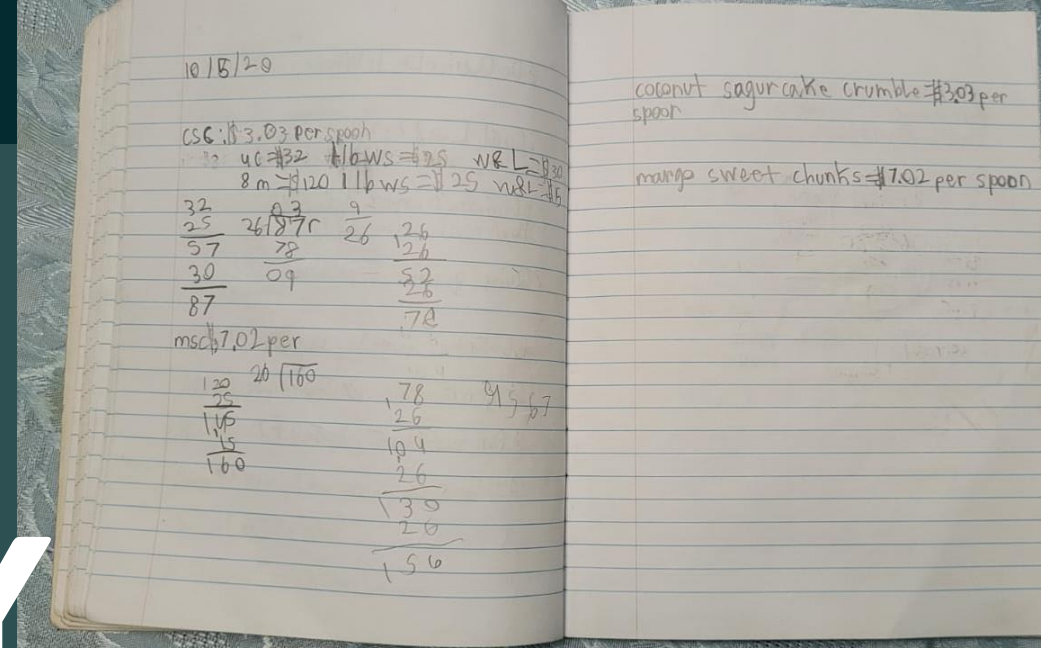 10/5/20
CSC:$3.03 Per spoon
4C=$32 1lb WS=$25 W&L=$30
8 m=$120 1lb WS=$25 W&L=$15
32
25
57
30
87
03
26/87r
78
09
9
26
26
26
52
26
78
msc$7.02 per
120
25
145
15
160
26/160
78
26
104
26
130
26
156
4 5 6 7
coconut sagur cake crumble=$3.03 per
spoon
mango sweet chunks=$7.02 per spoon